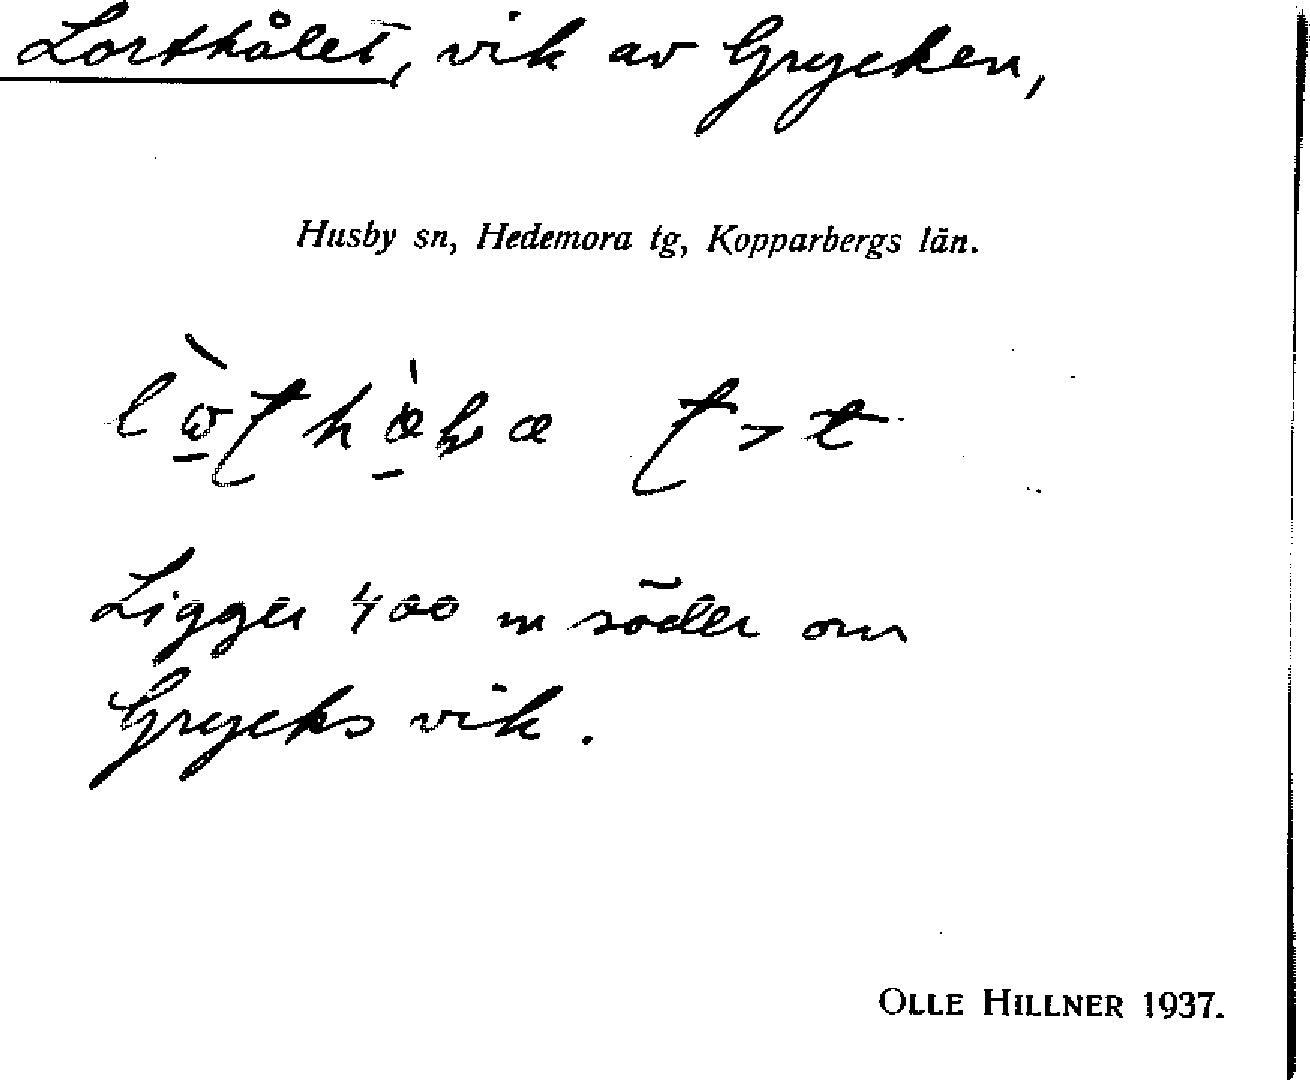 Lorthålet, vik av Grycken,
Husby sn, Hedemora tg, Kopparbergs län.
Ligger 400 m söder om
Grycks vik.
OLLE HILLNER 1937.